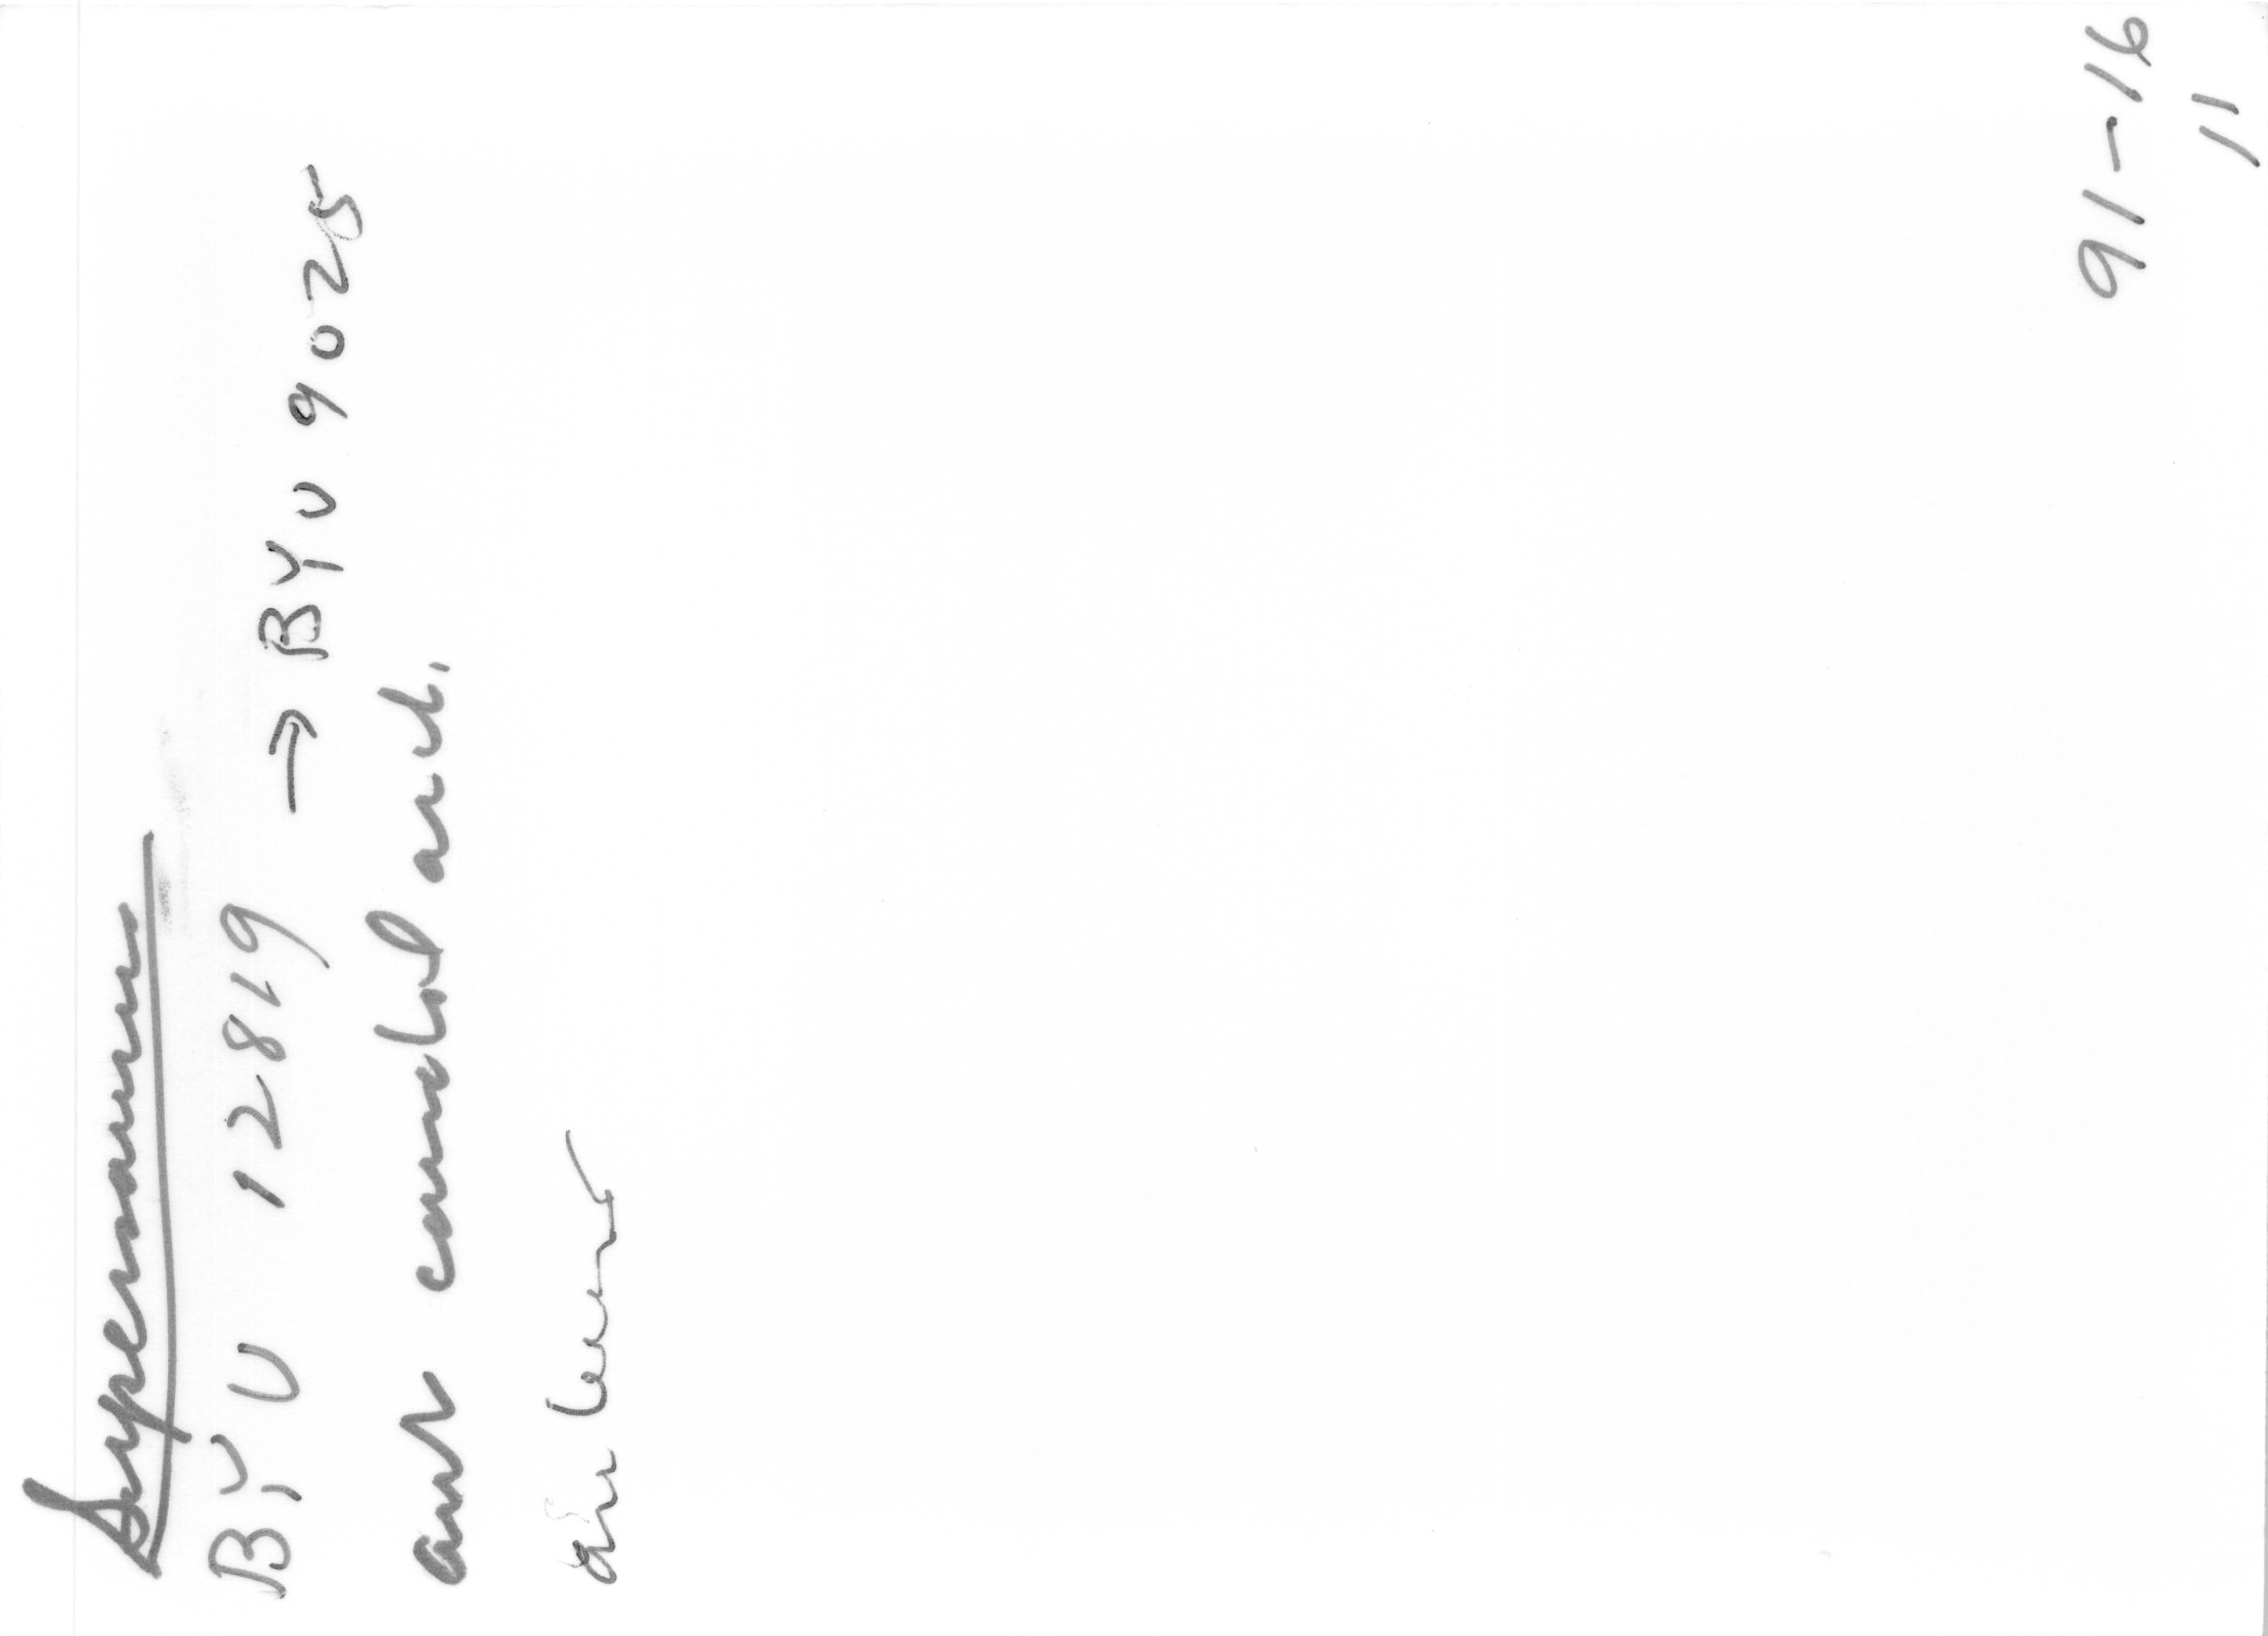 Supersaurus
BYU 12819 → BYU 9025
ant caudal arch.
anterior
91-16
11